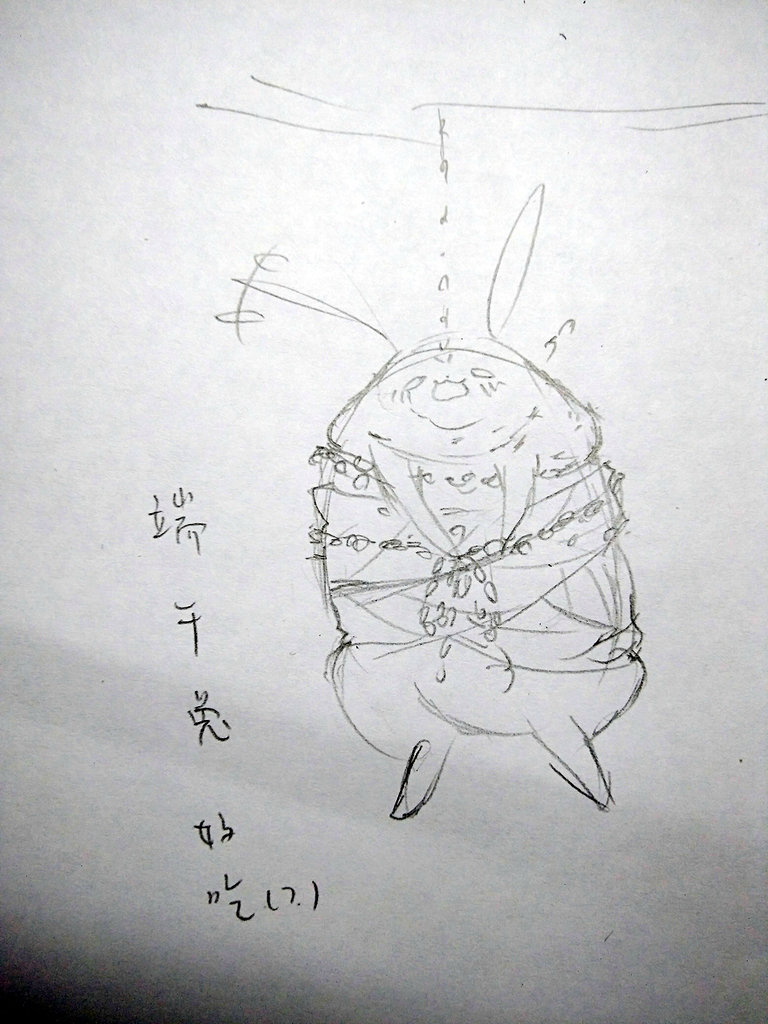 端午兔好吃(?)